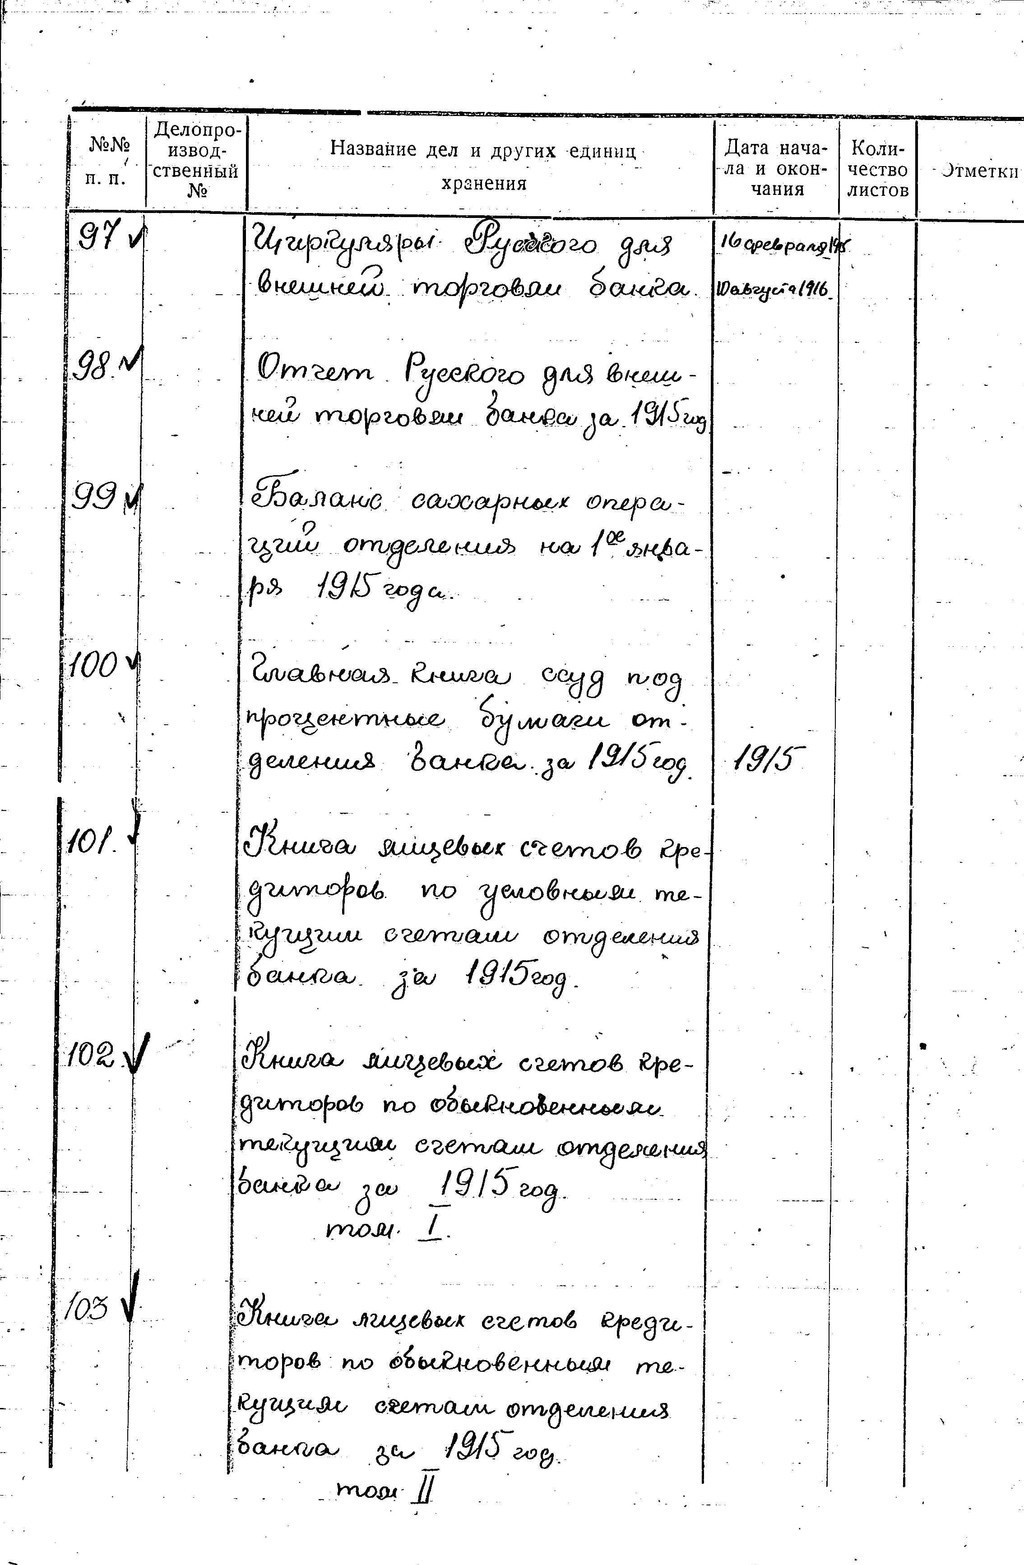 №№ п. п.
Делопро-
извод-
ственный
№
Название дел и других единиц
хранения
Дата нача-
ла и окон-
чания
Коли-
чество
листов
Отметки
97
Циркуляры Русского для
16 февраля
внешней торговли банка.
10 августа 1916
98.
Отчет Русского для внеш-
ней торговли банка за 1915 год
99
Баланс сахарных опера-
ций отделения на 1ое янва-
ря 1915 года.
100
Главная книга ссуд под
процентные бумаги от-
деления банка за 1915 год.
1915
101.
Книга лицевых счетов кре-
диторов по условным те-
кущим счетам отделения
банка за 1915 год.
102
Книга лицевых счетов кре-
диторов по обыкновенным
текущим счетам отделения
банка за 1915 год.
том. I.
103
Книга лицевых счетов креди-
торов по обыкновенным те-
кущим счетам отделения
банка за 1915 год.
том II